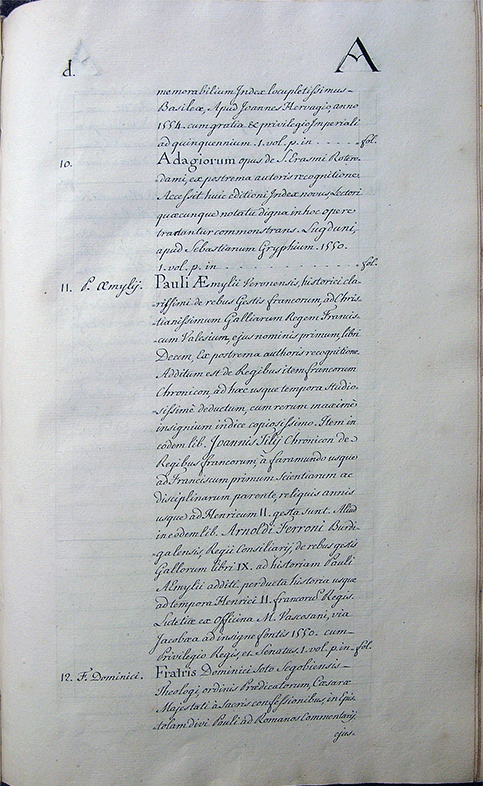 d.
A
memorabilium Index locupletissimus-
Basileæ, Apud Joannes Hervagio, anno
1554. cum gratia & privilegio Imperiali
ad quinquennium. 1. vol. p. in . . . . . fol.
10. Adagiorum opus de S. Erasmi Rotero-
dami, ex postrema autoris recognitione.
Accessit huic editioni Index novus Lectori
quæcunque notatu digna in hoc opere
tractantur commonstrans. Lugduni,
apud Sebastianum Gryphium. 1550.
1. vol. p. in . . . . . . . . . . . . fol.
11. P. Æmylij. Pauli Æmylii Veronensis, historici cla-
-rissimi de rebus Gestis francorum, ad Chris-
-tianissimum Galliarum Regem Francis-
-cum Valesium, ejus nominis primum, libri
Decem, Ex postrema authoris recognitione.
Additum est de Regibus item francorum
Chronicon, ad hæc usque tempora studio-
-sissimè deductum, cum rerum maximè
insignium indice copiosissimo. Item in
eodem lib. Joannis Tilij Chronicon de
Regibus francorum, à faramundo usque
ad Franciscum primum Scientiarum ac
disciplinarum parente, reliquis annis
usque ad Henricum II. gesta sunt. Aliud
in eodem lib. Arnoldi Ferroni Burdi-
-galensis, Regii Consiliarij, de rebus gestis
Gallorum libri IX. ad historiam Pauli
Æmylii additi, perducta historia usque
ad tempora Henrici II. francorũ Regis.
Lutetiæ ex Officina M. Vascosani, via
Jacobæa ad insigne fontis 1550. cum-
Privilegio Regis, et Senatus. 1. vol. p. in-fol.
12. F. Dominici. Fratris Dominici Soto Segobiensis-
Theologi, ordinis Prædicatorum, Cæsaræ
Majestati à Sacris confessionibus, in Epis-
-tolam divi Pauli ad Romanos Commentarij.
ejus-